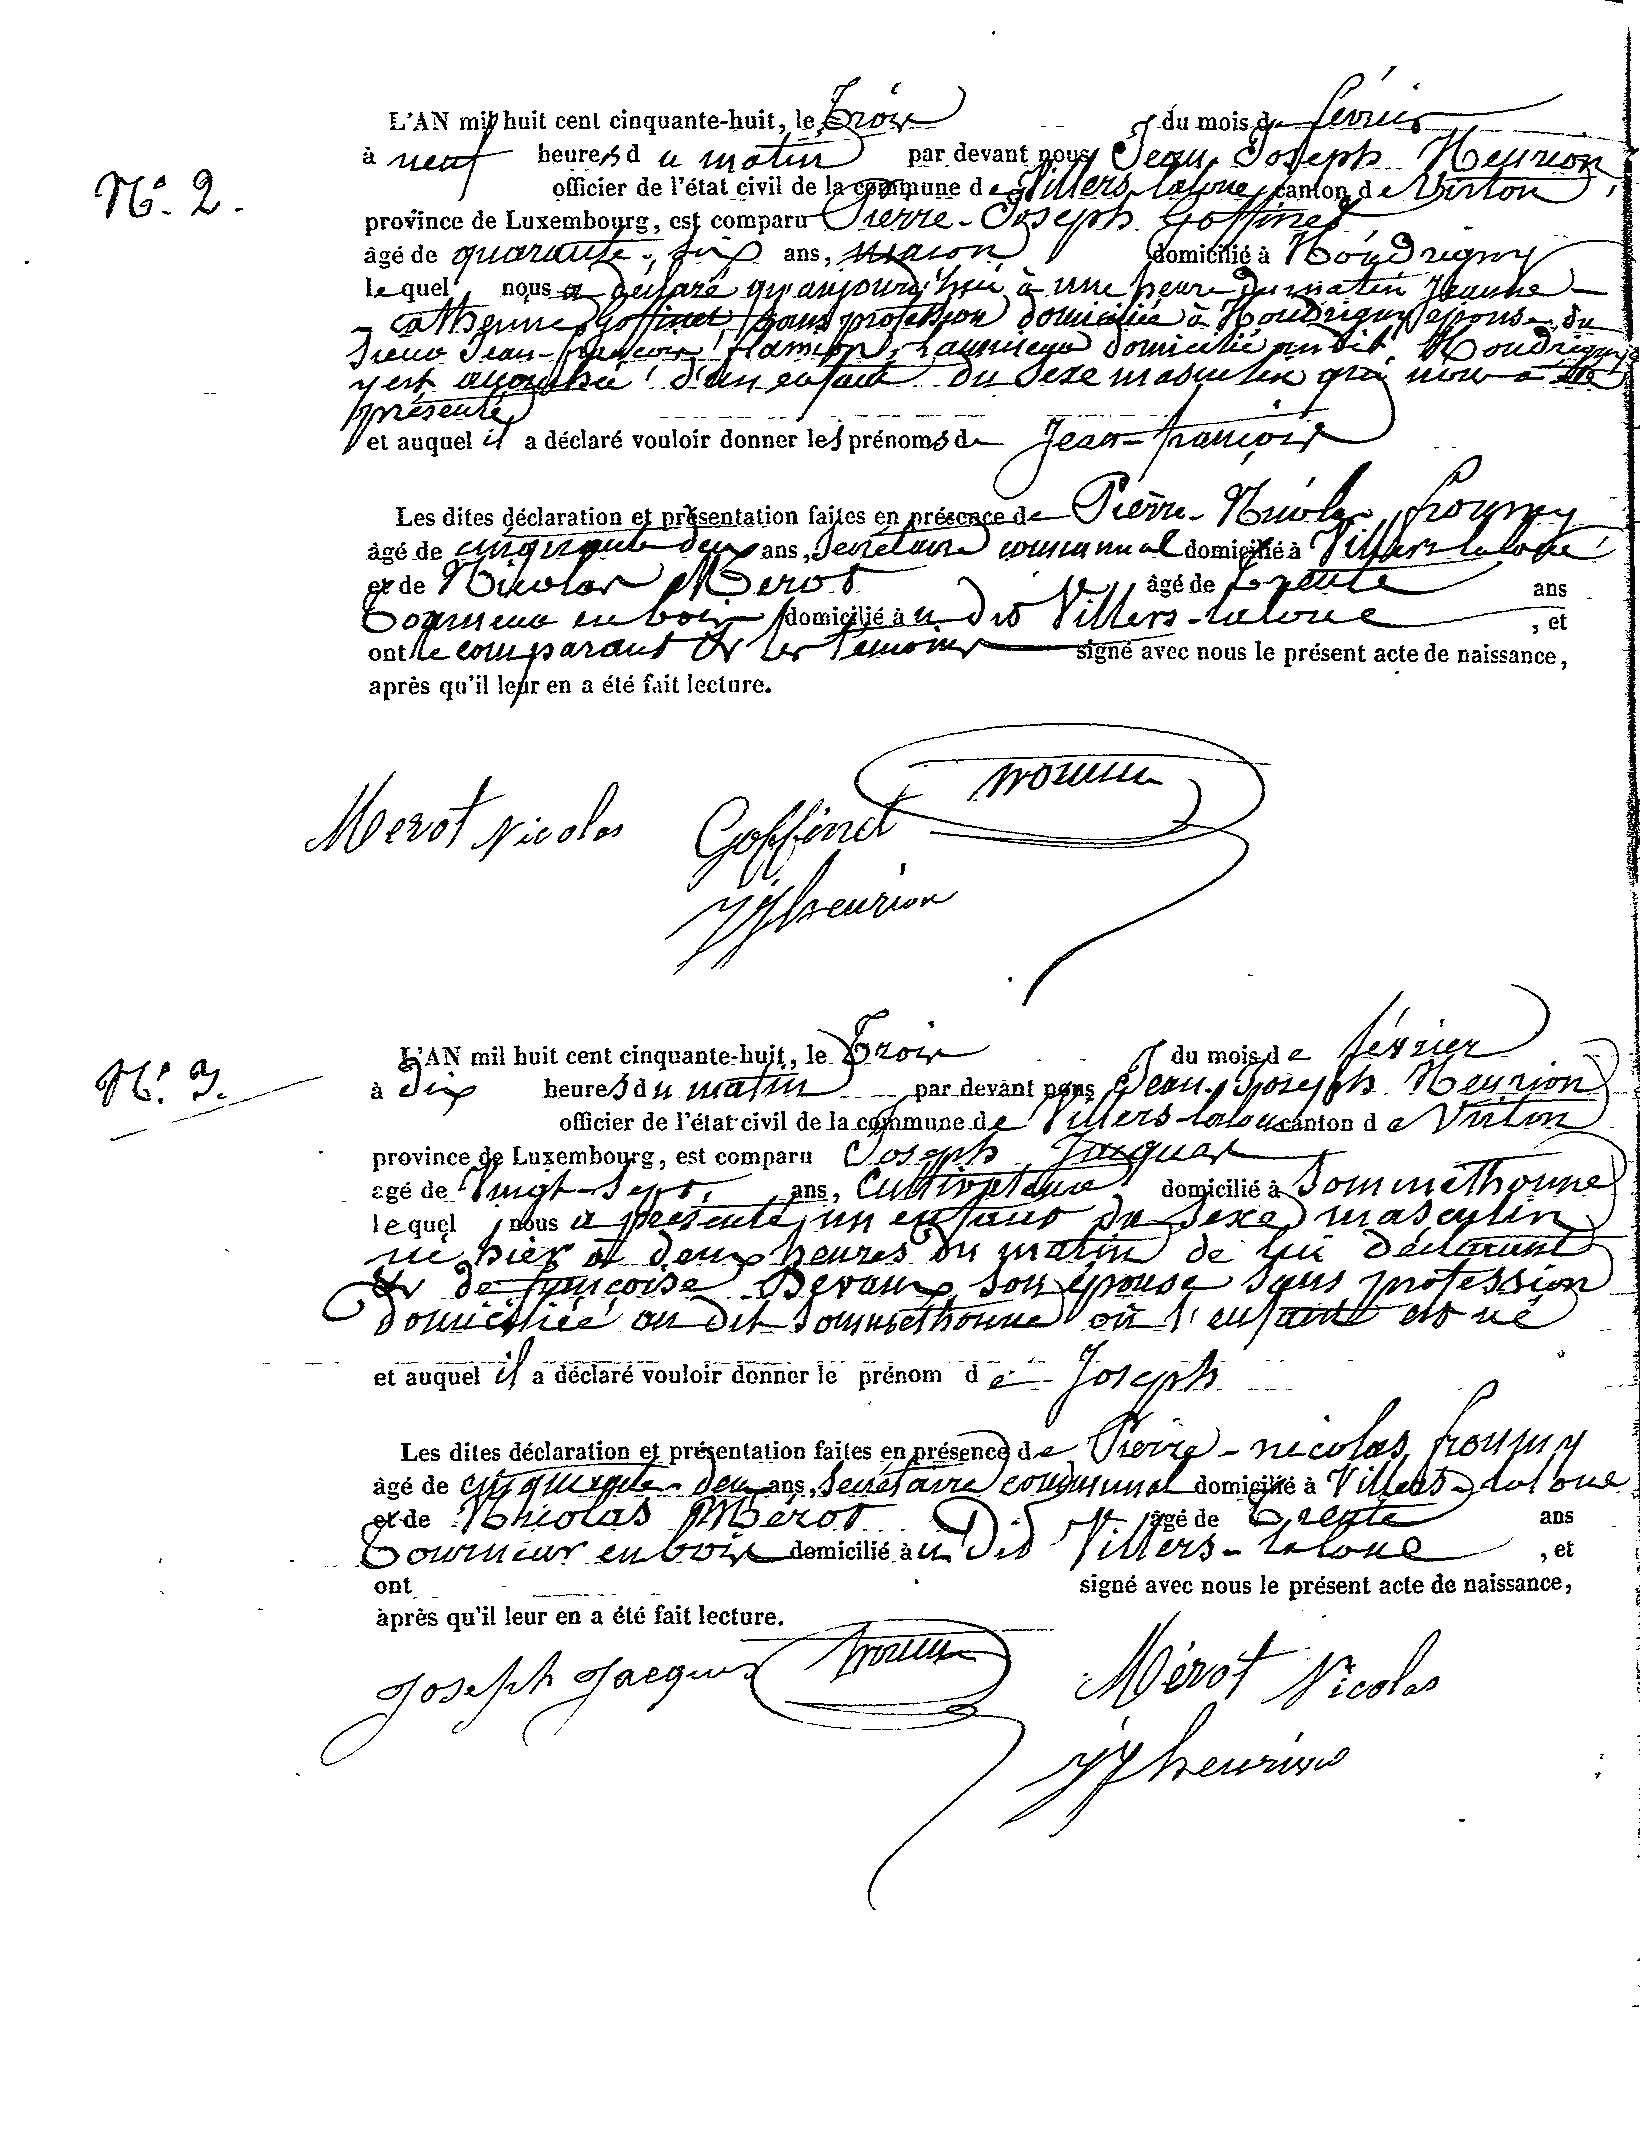 L'AN mil huit cent cinquante-huit, le Trois du mois de février
à neuf heures du matin par devant nous Jean Joseph Heurion
N° 2.
officier de l'état civil de la commune de Villers-laloue canton de Virton,
province de Luxembourg, est comparu Pierre-Joseph Goffinet
âgé de quarante-six ans, maçon domicilié à Houdrigny
lequel nous a déclaré qu'aujourd'hui à une heure du matin Jeanne
Catherine Goffinet sans profession domiciliée à Houdrigny épouse du
sieur Jean-françois domicilié au dit Houdrigny
y est accouchée d'un enfant du sexe masculin qu'il nous a
présenté
et auquel il a déclaré vouloir donner les prénoms de Jean-françois
Les dites déclaration et présentation faites en présence de Pierre-Nicolas froumy
âgé de cinquante deux ans, Secrétaire communal domicilié à Villers-laloue
et de Nicolas Mérot âgé de trente ans
Tourneur en bois domicilié au dit Villers-laloue, et
ont le comparant et les témoins signé avec nous le présent acte de naissance,
après qu'il leur en a été fait lecture.
froumy
Merot Nicolas Goffinet
JJheurion
L'AN mil huit cent cinquante-huit, le Trois du mois de février
N° 3.
à Dix heures du matin par devant nous Jean-Joseph Heurion
officier de l'état civil de la commune de Villers-laloue canton de Virton
province de Luxembourg, est comparu Joseph Jacques
âgé de Vingt-Sept ans, Cultivateur domicilié à Sommethonne
lequel nous a présenté un enfant du Sexe masculin
né hier à deux heures du matin de lui déclarant
et de françoise Devaux son épouse sans profession
domiciliée au dit Sommethonne où l'enfant est né
et auquel il a déclaré vouloir donner le prénom de Joseph
Les dites déclaration et présentation faites en présence de Pierre-nicolas froumy
âgé de cinquante-deux ans, Secrétaire communal domicilié à Villers-laloue
et de Nicolas Mérot âgé de Trente ans
Tourneur en bois domicilié au Dit Villers-laloue, et
ont signé avec nous le présent acte de naissance,
après qu'il leur en a été fait lecture.
Joseph Jacques froumy Mérot Nicolas
JJheurion